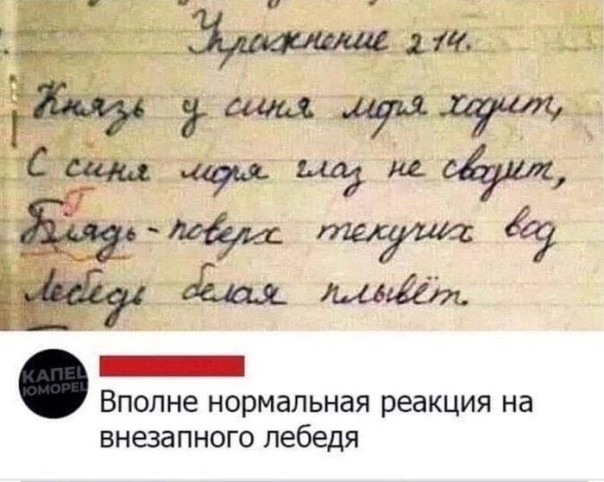 Упражнение 214.
Князь у синя моря ходит,
С синя моря глаз не сводит,
Г
Блядь - поверх текучих вод
Лебедь белая плывёт.
КАПЕЦ
ЮМОРЕЦ
Вполне нормальная реакция на
внезапного лебедя